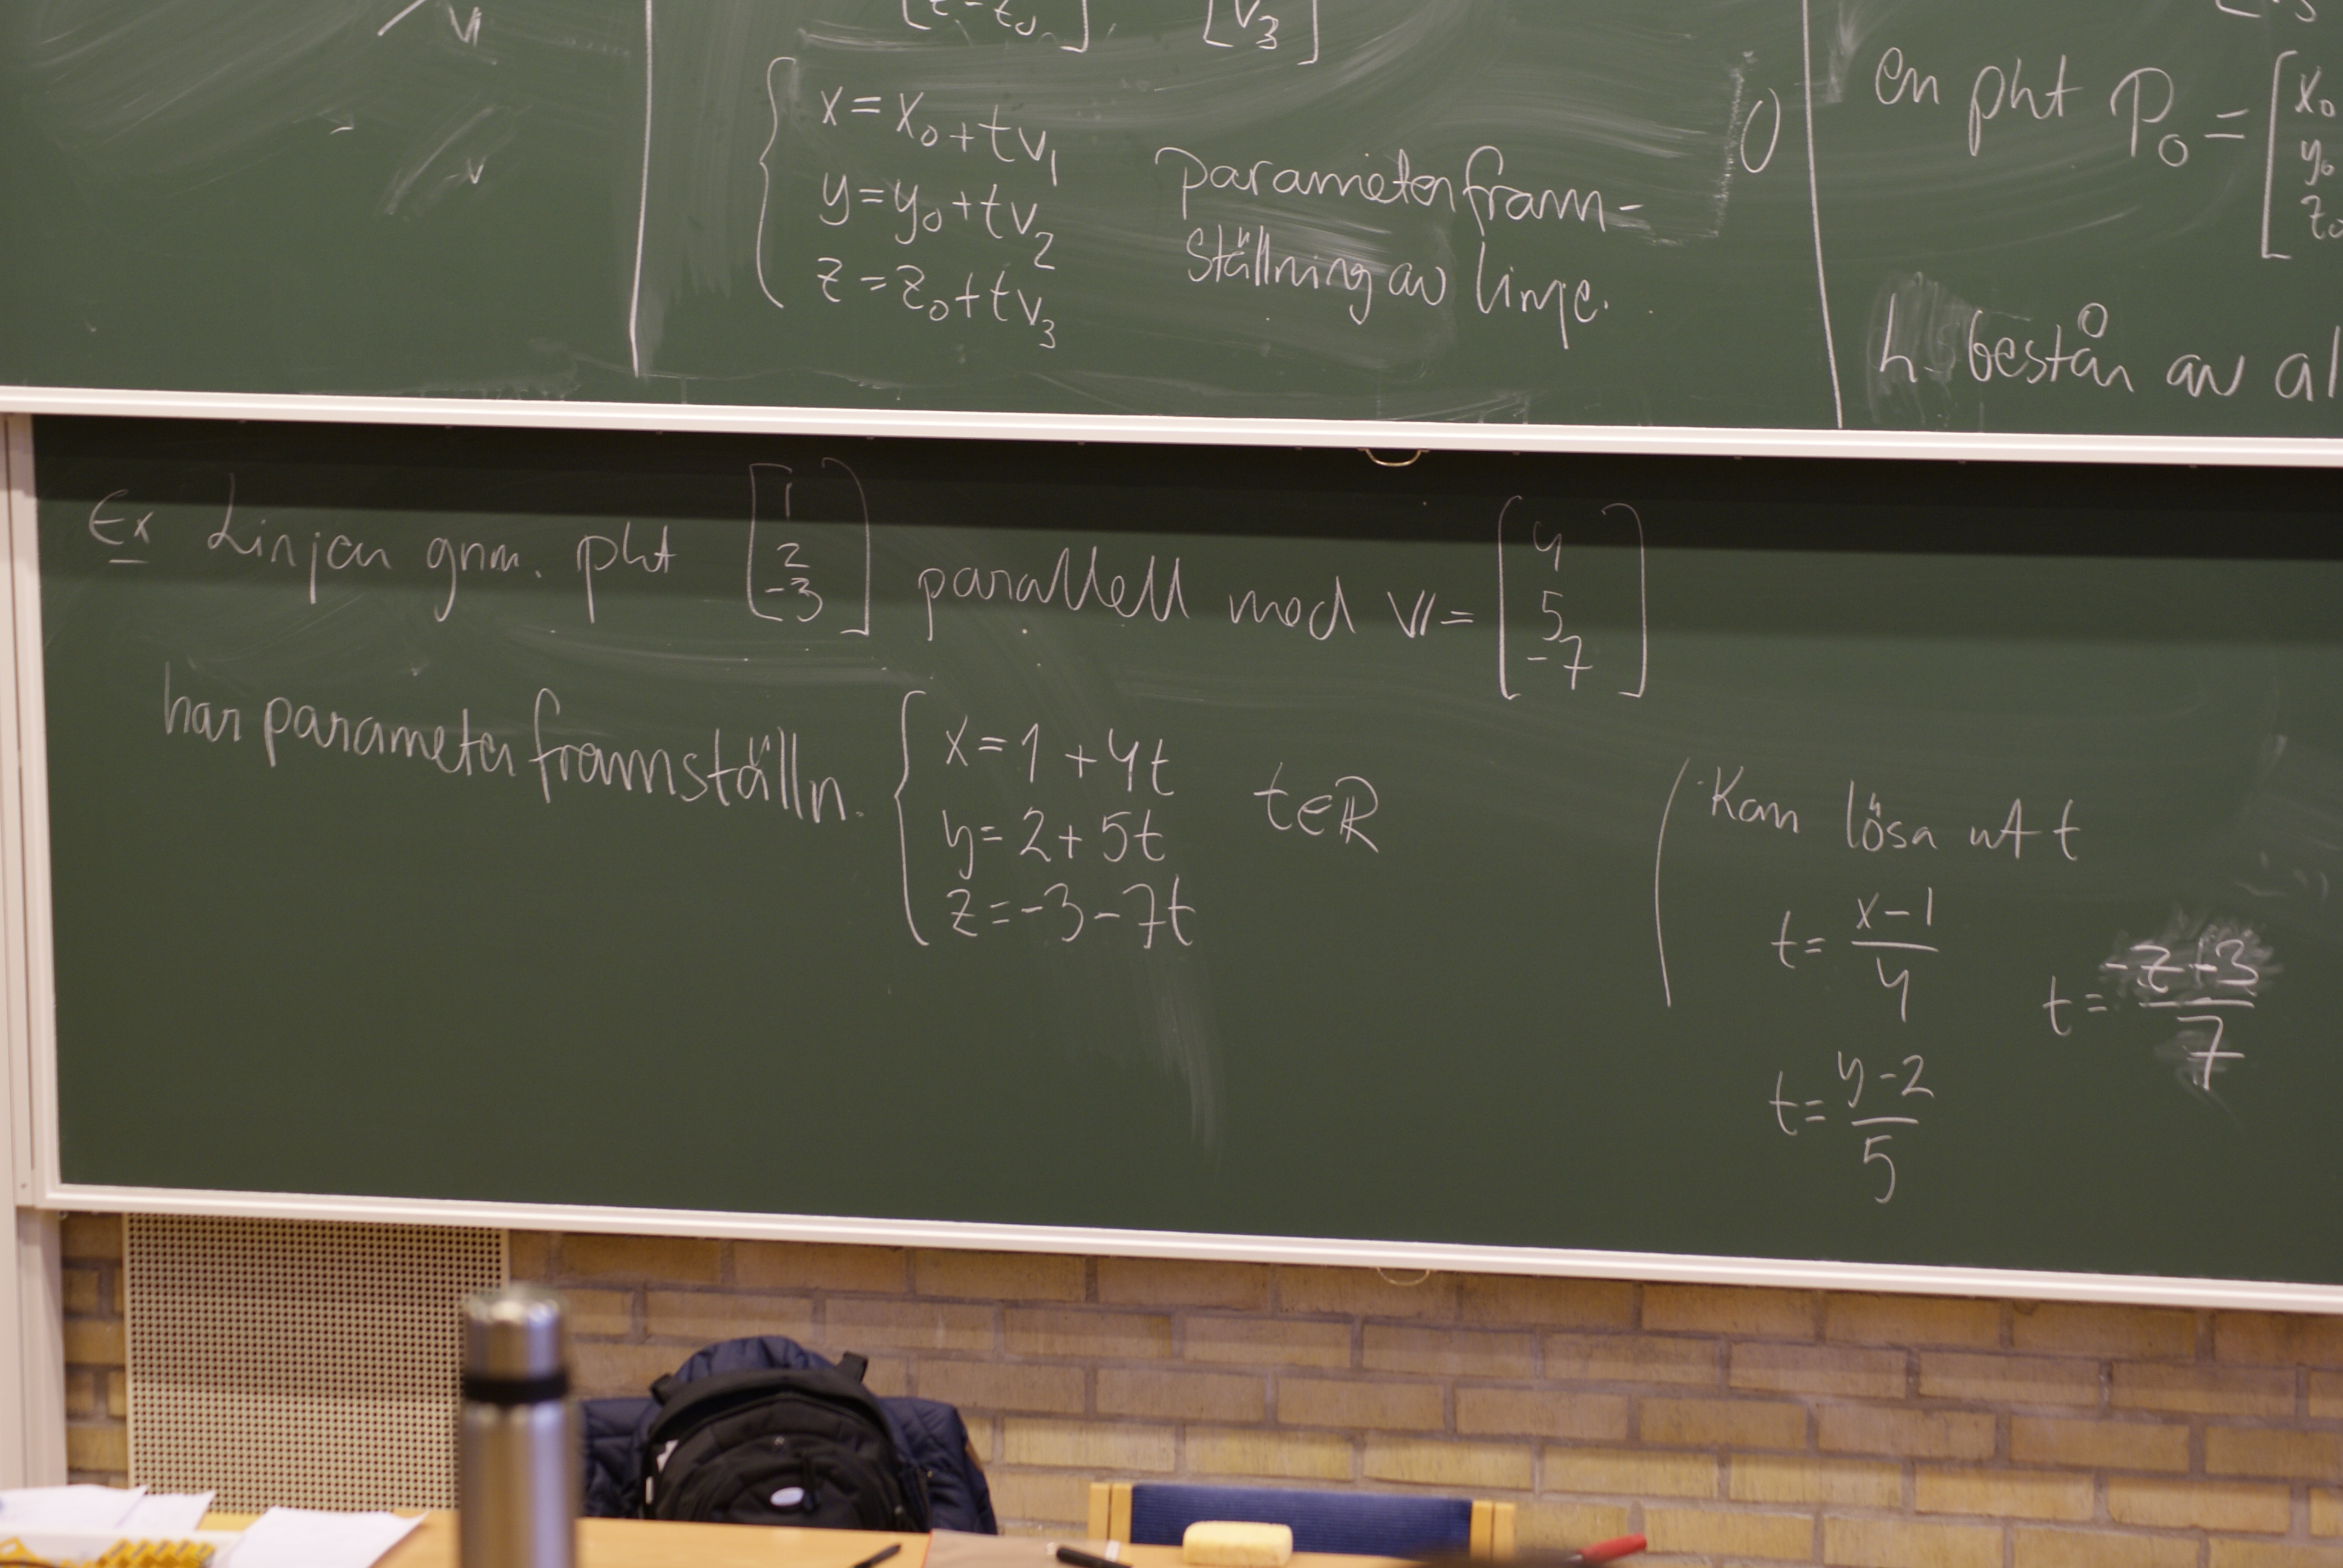 v
[z-z₀] [v₃]
x = x₀ + tv₁
y = y₀ + tv₂
z = z₀ + tv₃
parameterfram-
ställning av linje.
en pkt P₀ = [x₀ y₀ z₀
består av al
Ex Linjen gnm. pkt [1 2 -3] parallell med v = [4 5 -7]
har parameterframställn. { x = 1 + 4t
y = 2 + 5t
z = -3 - 7t
t ∈ R
Kan lösa ut t
t = (x-1)/4
t = (y-2)/5
t = (-z-3)/7